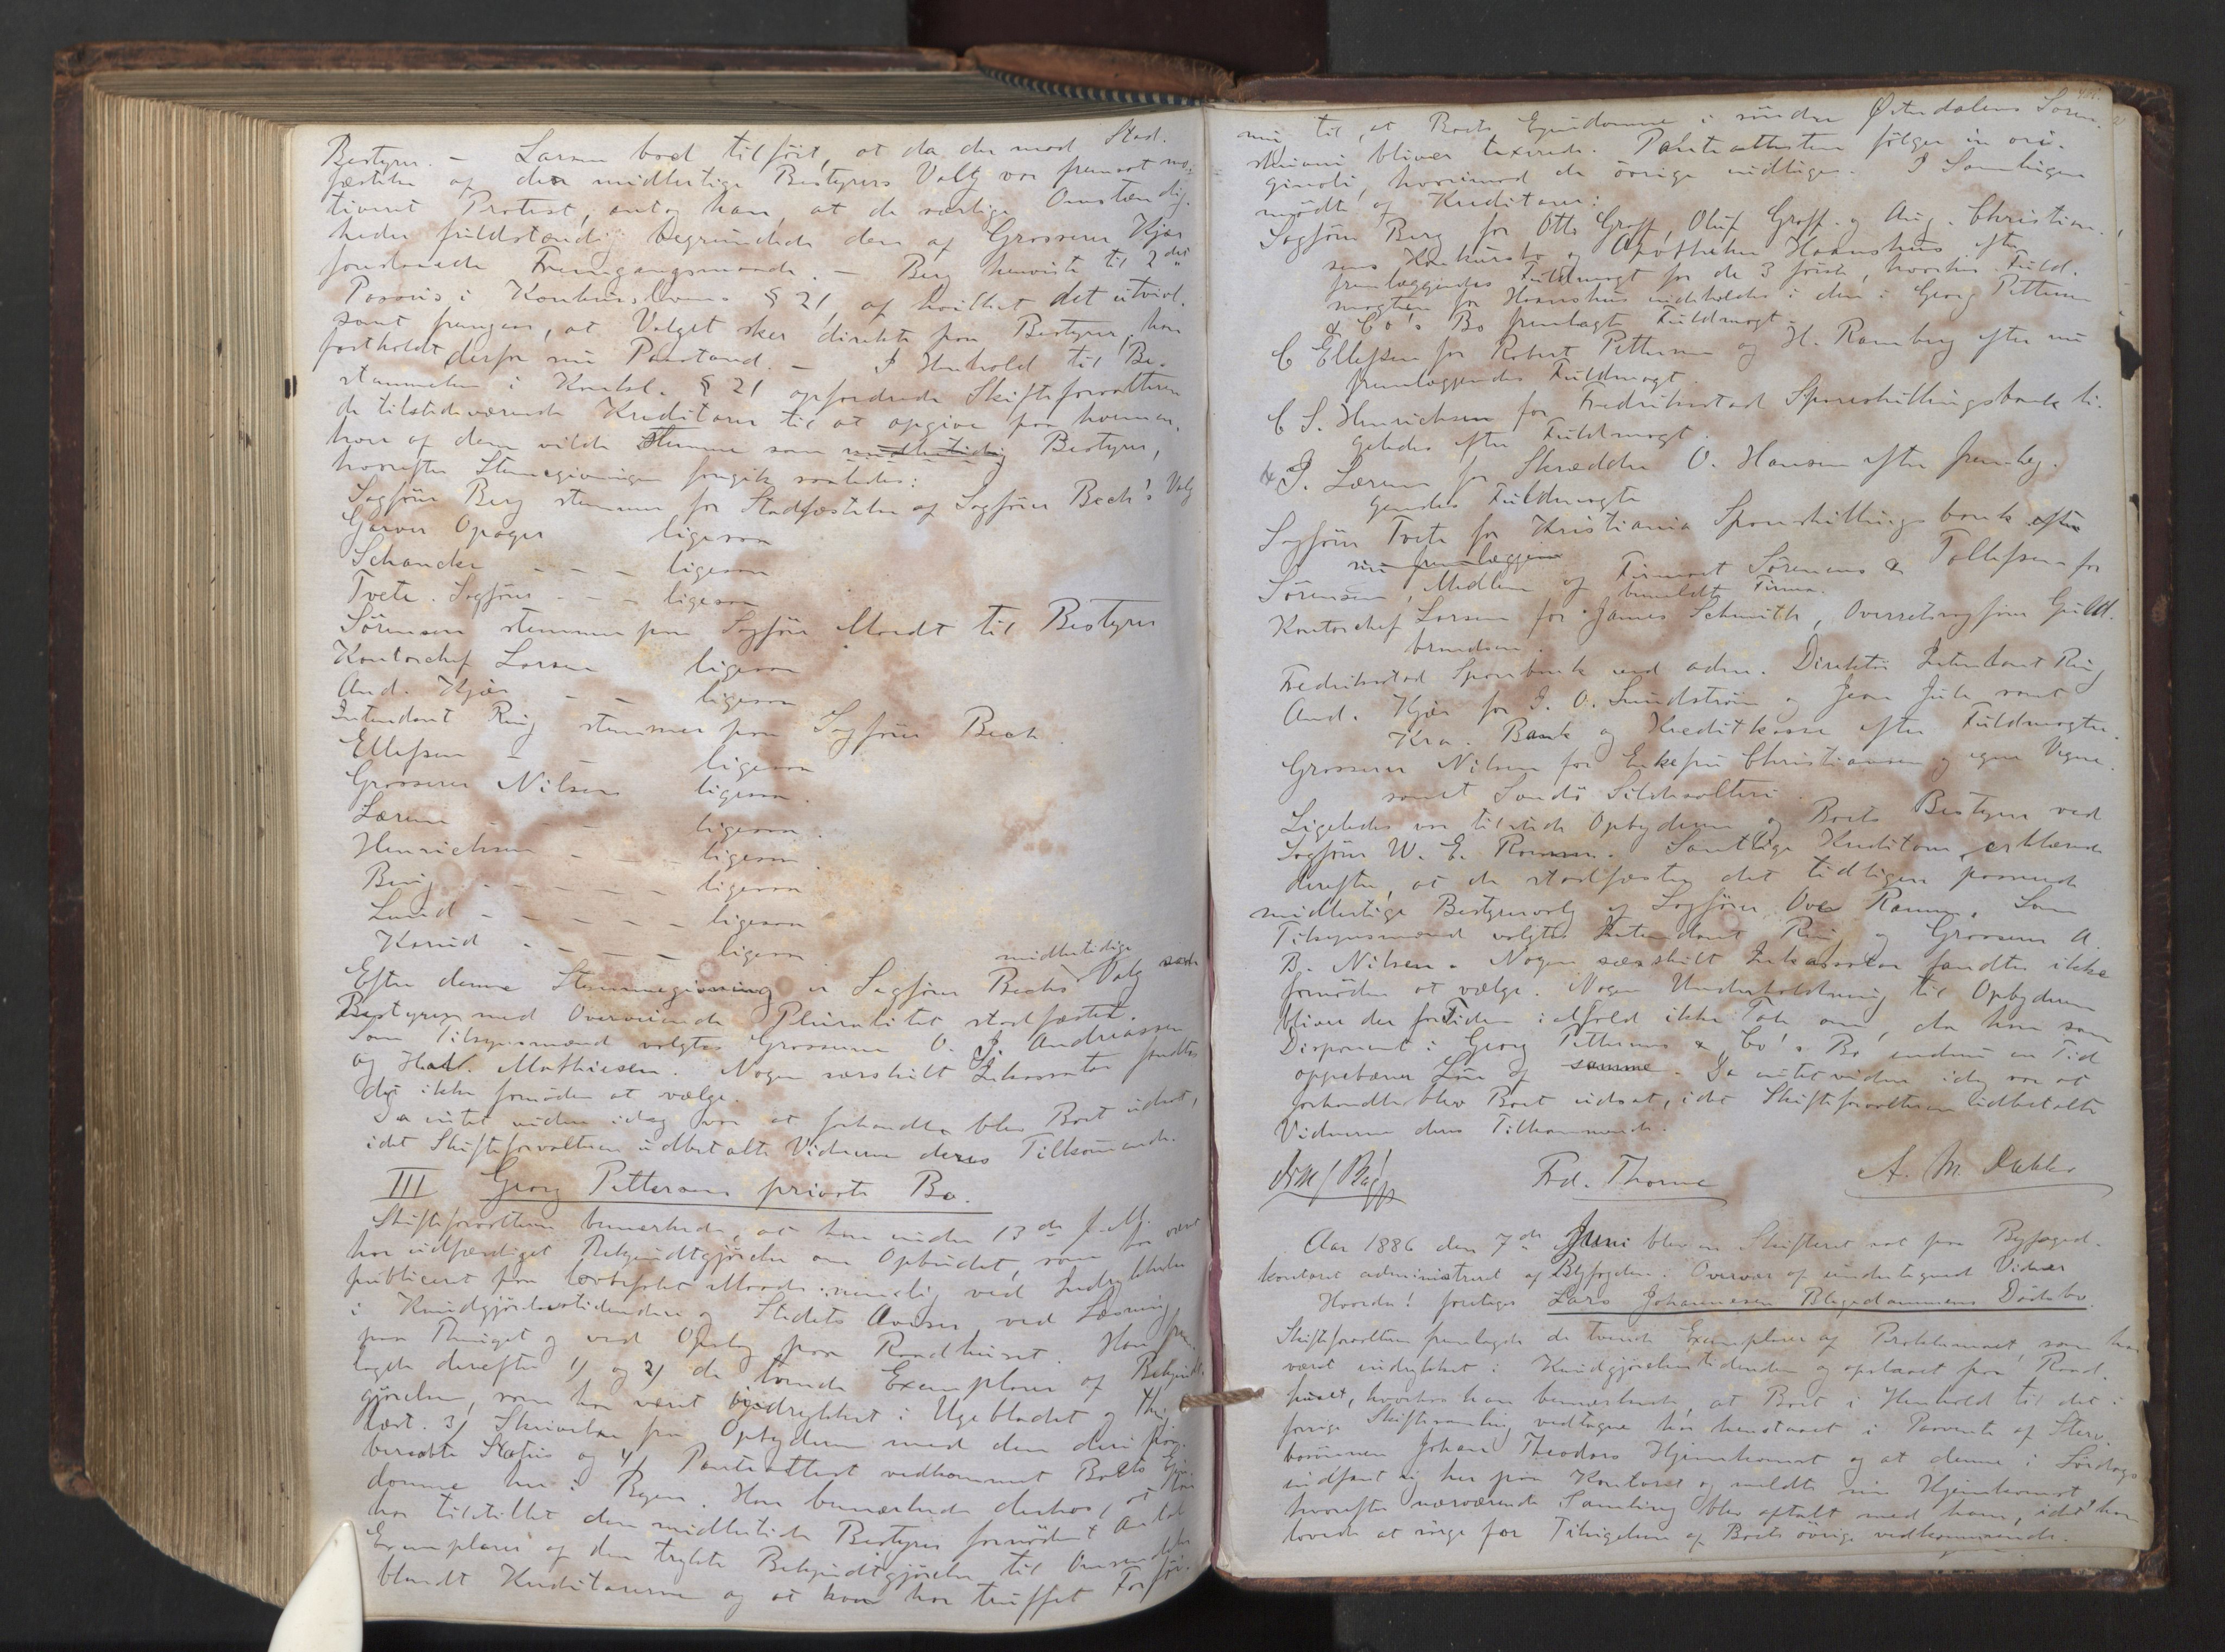 Bestyrer. — Larsen bad tilført, at da der mod Stad-
fæstelse af den midlertidige Bestyrers Valg var fremsat mo-
tiveret Protest, antog han, at de særlige Omstændig-
heder fuldstændig begrundede den af Grosserer Kjær
foreslaaede Fremgangsmaade. — Berg henviste til 2det
Passus i Konkurslovens § 21, af hvilket det utvivl-
somt fremgaar, at Valget sker direkte paa Bestyrer, han
fastholdt derfor sin Paastand. — I Henhold til Be-
stemmelsen i Konksl. § 21 opfordrede Skifteforvalteren
de tilstedeværende Kreditorer til at opgive paa hvem en-
hver af dem vilde stemme som midlertidig Bestyrer,
hvorefter Stemmegivningen foregik saaledes:
Sagfører Berg stemmer for Stadfæstelse af Sagfører Bech's Valg
Garver Opager ligesaa
Schancke - - - ligesaa
Tvete. Sagfører - - - ligesaa
Sørensen stemmer paa Sagfører Mordt til Bestyrer
Kontorchef Larsen ligesaa
And. Kjær - - ligesaa
Intendant Ring stemmer paa Sagfører Bech
Ellefsen - - ligesaa
Grosserer Nilsen ligesaa.
Lærum - - - ligesaa.
Henrichsen - - - ligesaa.
Berg - - - - - ligesaa
Lund - - - - - ligesaa
Korud - - - - ligesaa.
midlertidige
Efter denne Stemmegivning er Sagfører Bechs Valg som
Bestyrer med Overveiende Pluralitet stadfæstet.
Som Tilsynsmænd valgtes Grossererne O. J. Andreassen
og Hall. Mathiesen. Nogen særskilt Inkassator fandtes
det ikke fornøden at vælge.
Da intet videre idag var at forhandle blev Boet udsat,
idet Skifteforvalteren udbetalte Vidnerne deres Tilkommende.
III Georg Pettersens private Bo.
Skifteforvalteren bemærkede, at han under 13de f. M.
har udfærdiget Bekjendtgjørelse om Opbudet, som har været
publiceret paa lovbefalet Maade, nemlig ved Indrykkelse
i Kundgjørelsestidende og Stedets Aviser, ved Læsning
paa Thinget og ved Opslag paa Raadhuset. Han frem-
lagde derefter 1) og 2) de tvende Exemplarer af Bekjendt-
gjørelsen, som har været indrykket i Ugebladet og
læst. 3) Skrivelse fra Opbyderen med den deri
berørte Status og 4) Panteattest vedkommet Boets Eien-
domme her i Byen. Han bemærkede derhos, at han
har tilstillet den midlertidige Bestyrer fornødent Antal
Exemplarer af den trykte Bekjendtgjørelse til Omsendelse
blandt Kreditorerne og at han har truffet Forføi-
ning til, at Boets Eiendomme i søndre Østerdalens Soren-
skriveri bliver taxerede. Panteattesten følger in ori-
ginali, hvorimod de øvrige indtages. I Samlingen
mødte af Kreditorer:
Sagfører Berg for Otto Graff, Oluf Graff og Aug. Christian-
sens Konkursbo og Apotheker Haanshus efter
fremlæggendes Fuldmagt for de 3 første, hvorhos Fuld-
magten for Haanshus indeholdes i den i Georg Pettersen
& Co's Bo fremlagte Fuldmagt.
C Ellefsen for Robert Pettersen og H. Ramberg efter nu
fremlæggendes Fuldmagt.
C S. Henrichsen for Fredrikstad Spareskillingsbank li-
geledes efter Fuldmagt.
J. Lærum for Skrædder O. Hansen efter fremlæg-
gendes Fuldmagt
Sagfører Tvete for Kristiania Spareskillingsbank efter
nu fremlæggen
Sørensen, Medlem af Firmaet Sørensens & Tollefsen for
bemeldte Firma.
Kontorchef Larsen for James Schmith, Overretssagfører Guld-
brandsen.
Fredrikstad Sparebank ved adm. Direktør Intendant Ring
And. Kjær for J. O. Sundstrøm og Jean Jule samt
Kra. Bank og Kreditkasse efter Fuldmagter.
Grosserer Nilsen for Enkefru Christiansen og egne Vegne,
samt Sandø Sildesalteri.
Ligeledes var tilstede Opbyderen og Boets Bestyrer ved
Sagfører W. E. Ramm. Samtlige Kreditorer erklærede
derefter, at de stadfæster det tidligere passerede
midlertidige Bestyrervalg af Sagfører Ove Ramm. Som
Tilsynsmænd valgtes Intendant Ring og Grosserer A.
B. Nilsen. Nogen særskilt Inkassator fandtes ikke
fornøden at vælge. Nogen Underholdning til Opbyderen
bliver der for Tiden ialfald ikke Tale om, da han som
Disponent i Georg Pettersens & Co's Bo endnu en Tid
oppebærer Løn af samme. Da intet videre idag var at
forhandle blev Boet udsat, idet Skifteforvalteren udbetalte
Vidnerne deres Tilkommende.
Frd. Thorne A. M. Dahler
Aar 1886 den 7de Juni blev en Skifteret sat paa Byfoged-
kontoret administreret af Byfogden. Overvær af undertegnede Vidner
Hvorda! foretoges Lars Johannesen Blegedammens Dødsbo.
Skifteforvalteren fremlagde de tvende Exemplarer af Proklamaet, som har
været indrykket i Kundgjørelsestidenden og opslaaet paa Raad-
huset, hvorhos han bemærkede, at Boet i Henhold til det i
forrige Skiftesamling vedtagne har henstaaet i Paavente af Sterv-
bosønnen Johan Theodors Hjemkomst og at denne i Lørdags
indfant sig her paa Kontoret og meldte sin Hjemkomst,
hvorefter nærværende Samling blev aftalt med ham, idet han
lovede at sørge for Tilsigelsen af Boets øvrige vedkommende.